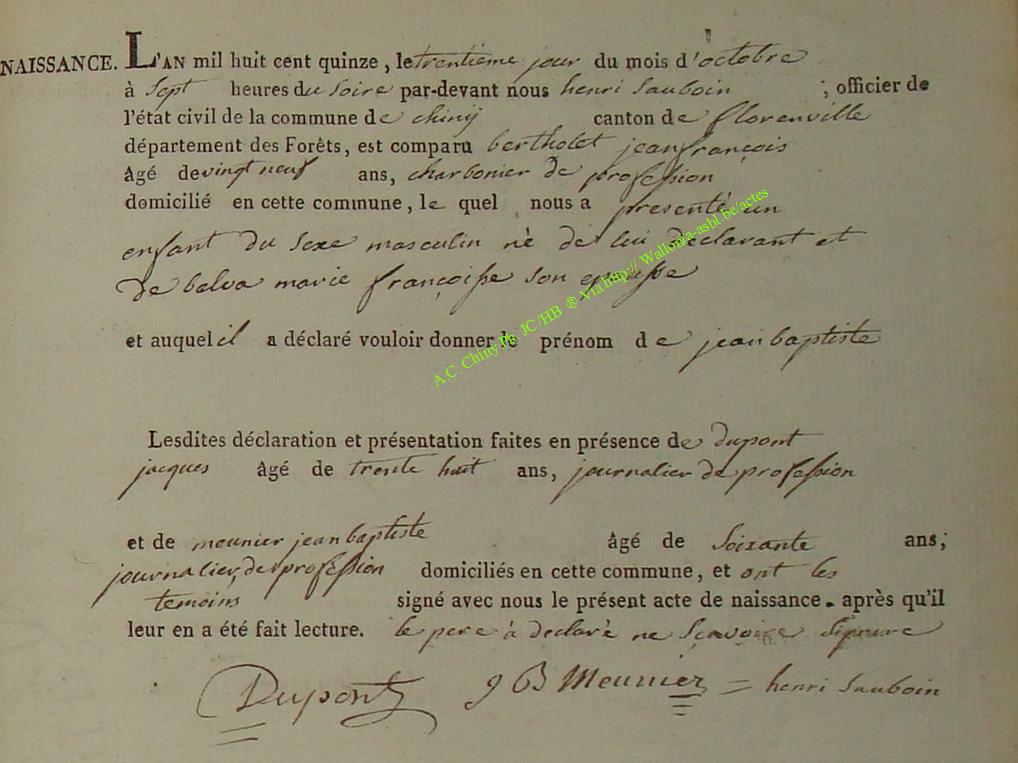 NAISSANCE. L'AN mil huit cent quinze, le trentieme jour du mois d'octobre
à sept heures du soire par-devant nous henri Sauboin ; officier de
l'état civil de la commune de chinÿ canton de florenville
département des Forêts, est comparu bertholet jean françois
âgé de vingt neuf ans, charbonier de profession
domicilié en cette commune, le quel nous a presenté un
enfant du sexe masculin nè de lui declarant et
de balva marie françoisse son epousse
et auquel il a déclaré vouloir donner le prénom de jean baptiste
A.C. Chiny Ph. JC /HB ® Via http:// Wallonia-asbl.be/actes
Lesdites déclaration et présentation faites en présence de dupont
jacques âgé de trente huit ans, journalier de profession
et de meunier jean baptiste âgé de soixante ans,
journalier de profession domiciliés en cette commune, et ont les
temoins signé avec nous le présent acte de naissance. après qu'il
leur en a été fait lecture. le pere à declarè ne sçavoire
Dupont J B Meunier = henri Sauboin